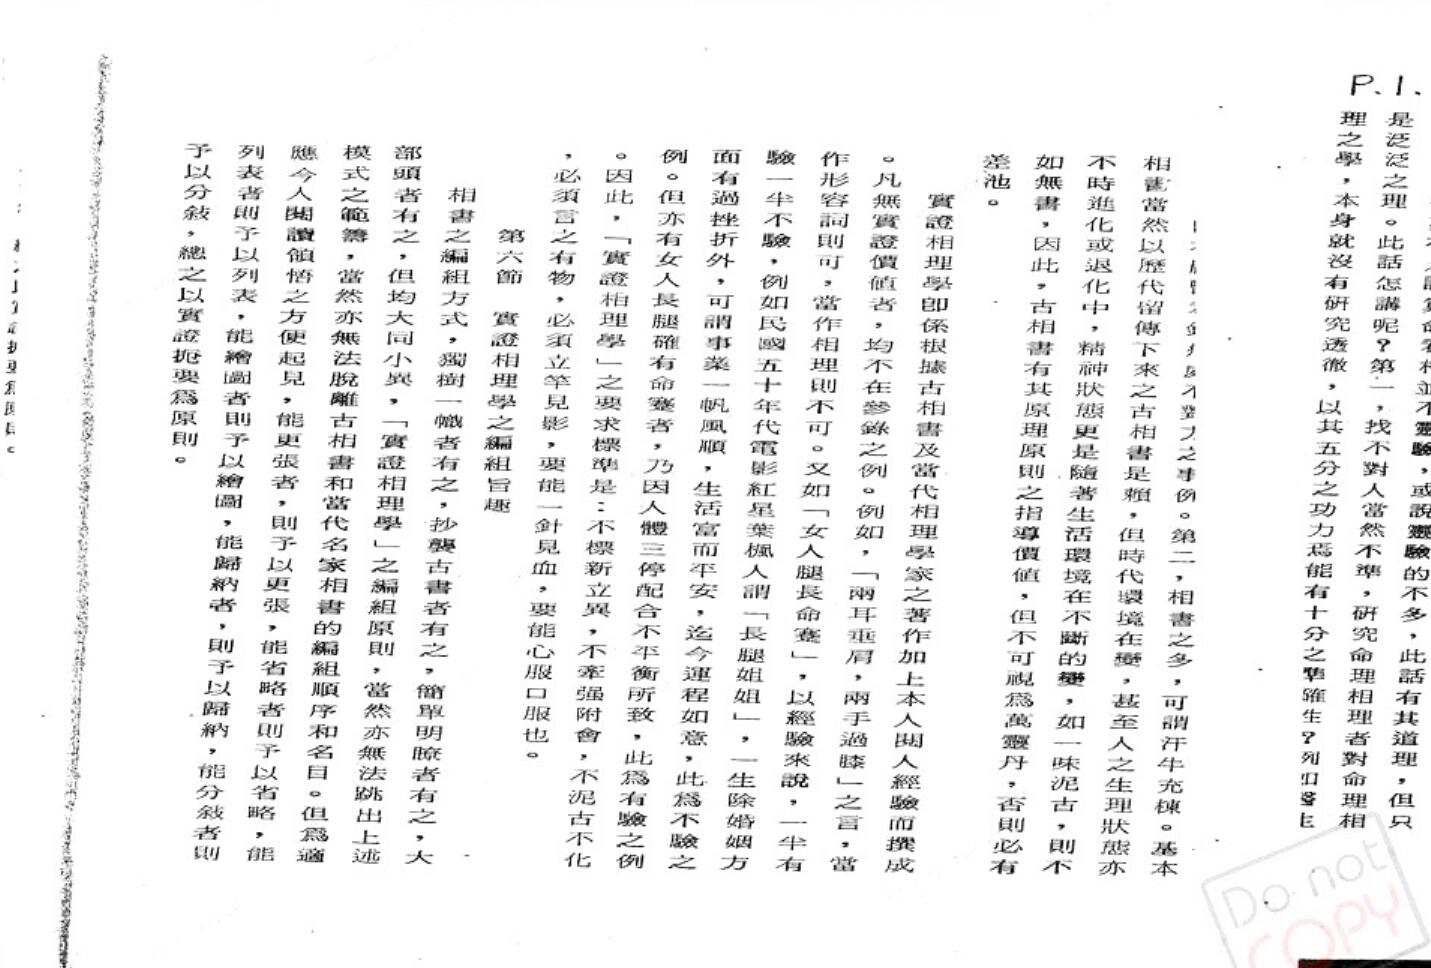 P.1.
是泛泛之理。此話怎講呢？第一，找不對人當然不準，研究命理相理者對命理相
理之學，本身就沒有研究透徹，以其五分之功力焉能有十分之準確性？
之事例。第二，相書之多，可謂汗牛充棟。基本
相書當然以歷代留傳下來之古相書是賴，但時代環境在變，甚至人之生理狀態亦
不時進化或退化中，精神狀態更是隨著生活環境在不斷的變，如一味泥古，則不
如無書，因此，古相書有其原理原則之指導價值，但不可視為萬靈丹，否則必有
差池。
實證相理學卽係根據古相書及當代相理學家之著作加上本人閱人經驗而撰成
。凡無實證價值者，均不在參錄之例。例如，「兩耳垂肩，兩手過膝」之言，當
作形容詞則可，當作相理則不可。又如「女人腿長命蹇」，以經驗來說，一半有
驗一半不驗，例如民國五十年代電影紅星葉楓人謂「長腿姐姐」，一生除婚姻方
面有過挫折外，可謂事業一帆風順，生活富而平安，迄今運程如意，此為不驗之
例。但亦有女人長腿確有命蹇者，乃因人體三停配合不平衡所致，此為有驗之例
。因此，「實證相理學」之要求標準是：不標新立異，不牽强附會，不泥古不化
，必須言之有物，必須立竿見影，要能一針見血，要能心服口服也。
第六節　實證相理學之編組旨趣
相書之編組方式，獨樹一幟者有之，抄襲古書者有之，簡單明瞭者有之，大
部頭者有之，但均大同小異，「實證相理學」之編組原則，當然亦無法跳出上述
模式之範籌，當然亦無法脫離古相書和當代名家相書的編組順序和名目。但為適
應今人閱讀領悟之方便起見，能更張者，則予以更張，能省略者則予以省略，能
列表者則予以列表，能繪圖者則予以繪圖，能歸納者，則予以歸納，能分敍者則
予以分敍，總之以實證扼要為原則。
Do not
COPY